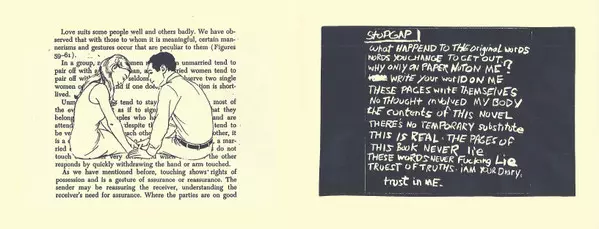 Love suits some people well and others badly. We have ob-
served that with those to whom it is meaningful, certain man-
nerisms and gestures occur that are peculiar to them (Figures
59-61).
In a group, men unmarried tend to
pair off with ried women tend to
pair off seldom observe two single
women and if one does is short-
lived.
Unm tend to stay most of
the ev as if to sign that they
belong ples who and are
attend despite th tend to
be ve ach othe other, it
is a a mar-
ried do not
touch very the other
responds by quickly withdrawing the hand or arm touched.
As we have mentioned before, touching shows rights of
possession and is a gesture of assurance or reassurance. The
sender may be reassuring the receiver, understanding the
receiver's need for assurance. Where the parties are on good
STOPGAP
WHAT HAPPEND TO THE ORIGINAL WORDS
WORDS YOU CHANGE TO GET OUT
WHY ONLY ON PAPER NOT ON ME?
WRITE YOUR WORLD ON ME
THESE PAGES WRITE THEMSELVES
NO THOUGHT INVOLVED MY BODY
the contents OF THIS NOVEL
THERE'S NO TEMPORARY substitute
THIS IS REAL. THE PAGES OF
THIS BOOK NEVER lie
THESE WORDS NEVER Fucking Lie
TRUEST OF TRUTHS. I AM YOUR Diary,
trust in ME.